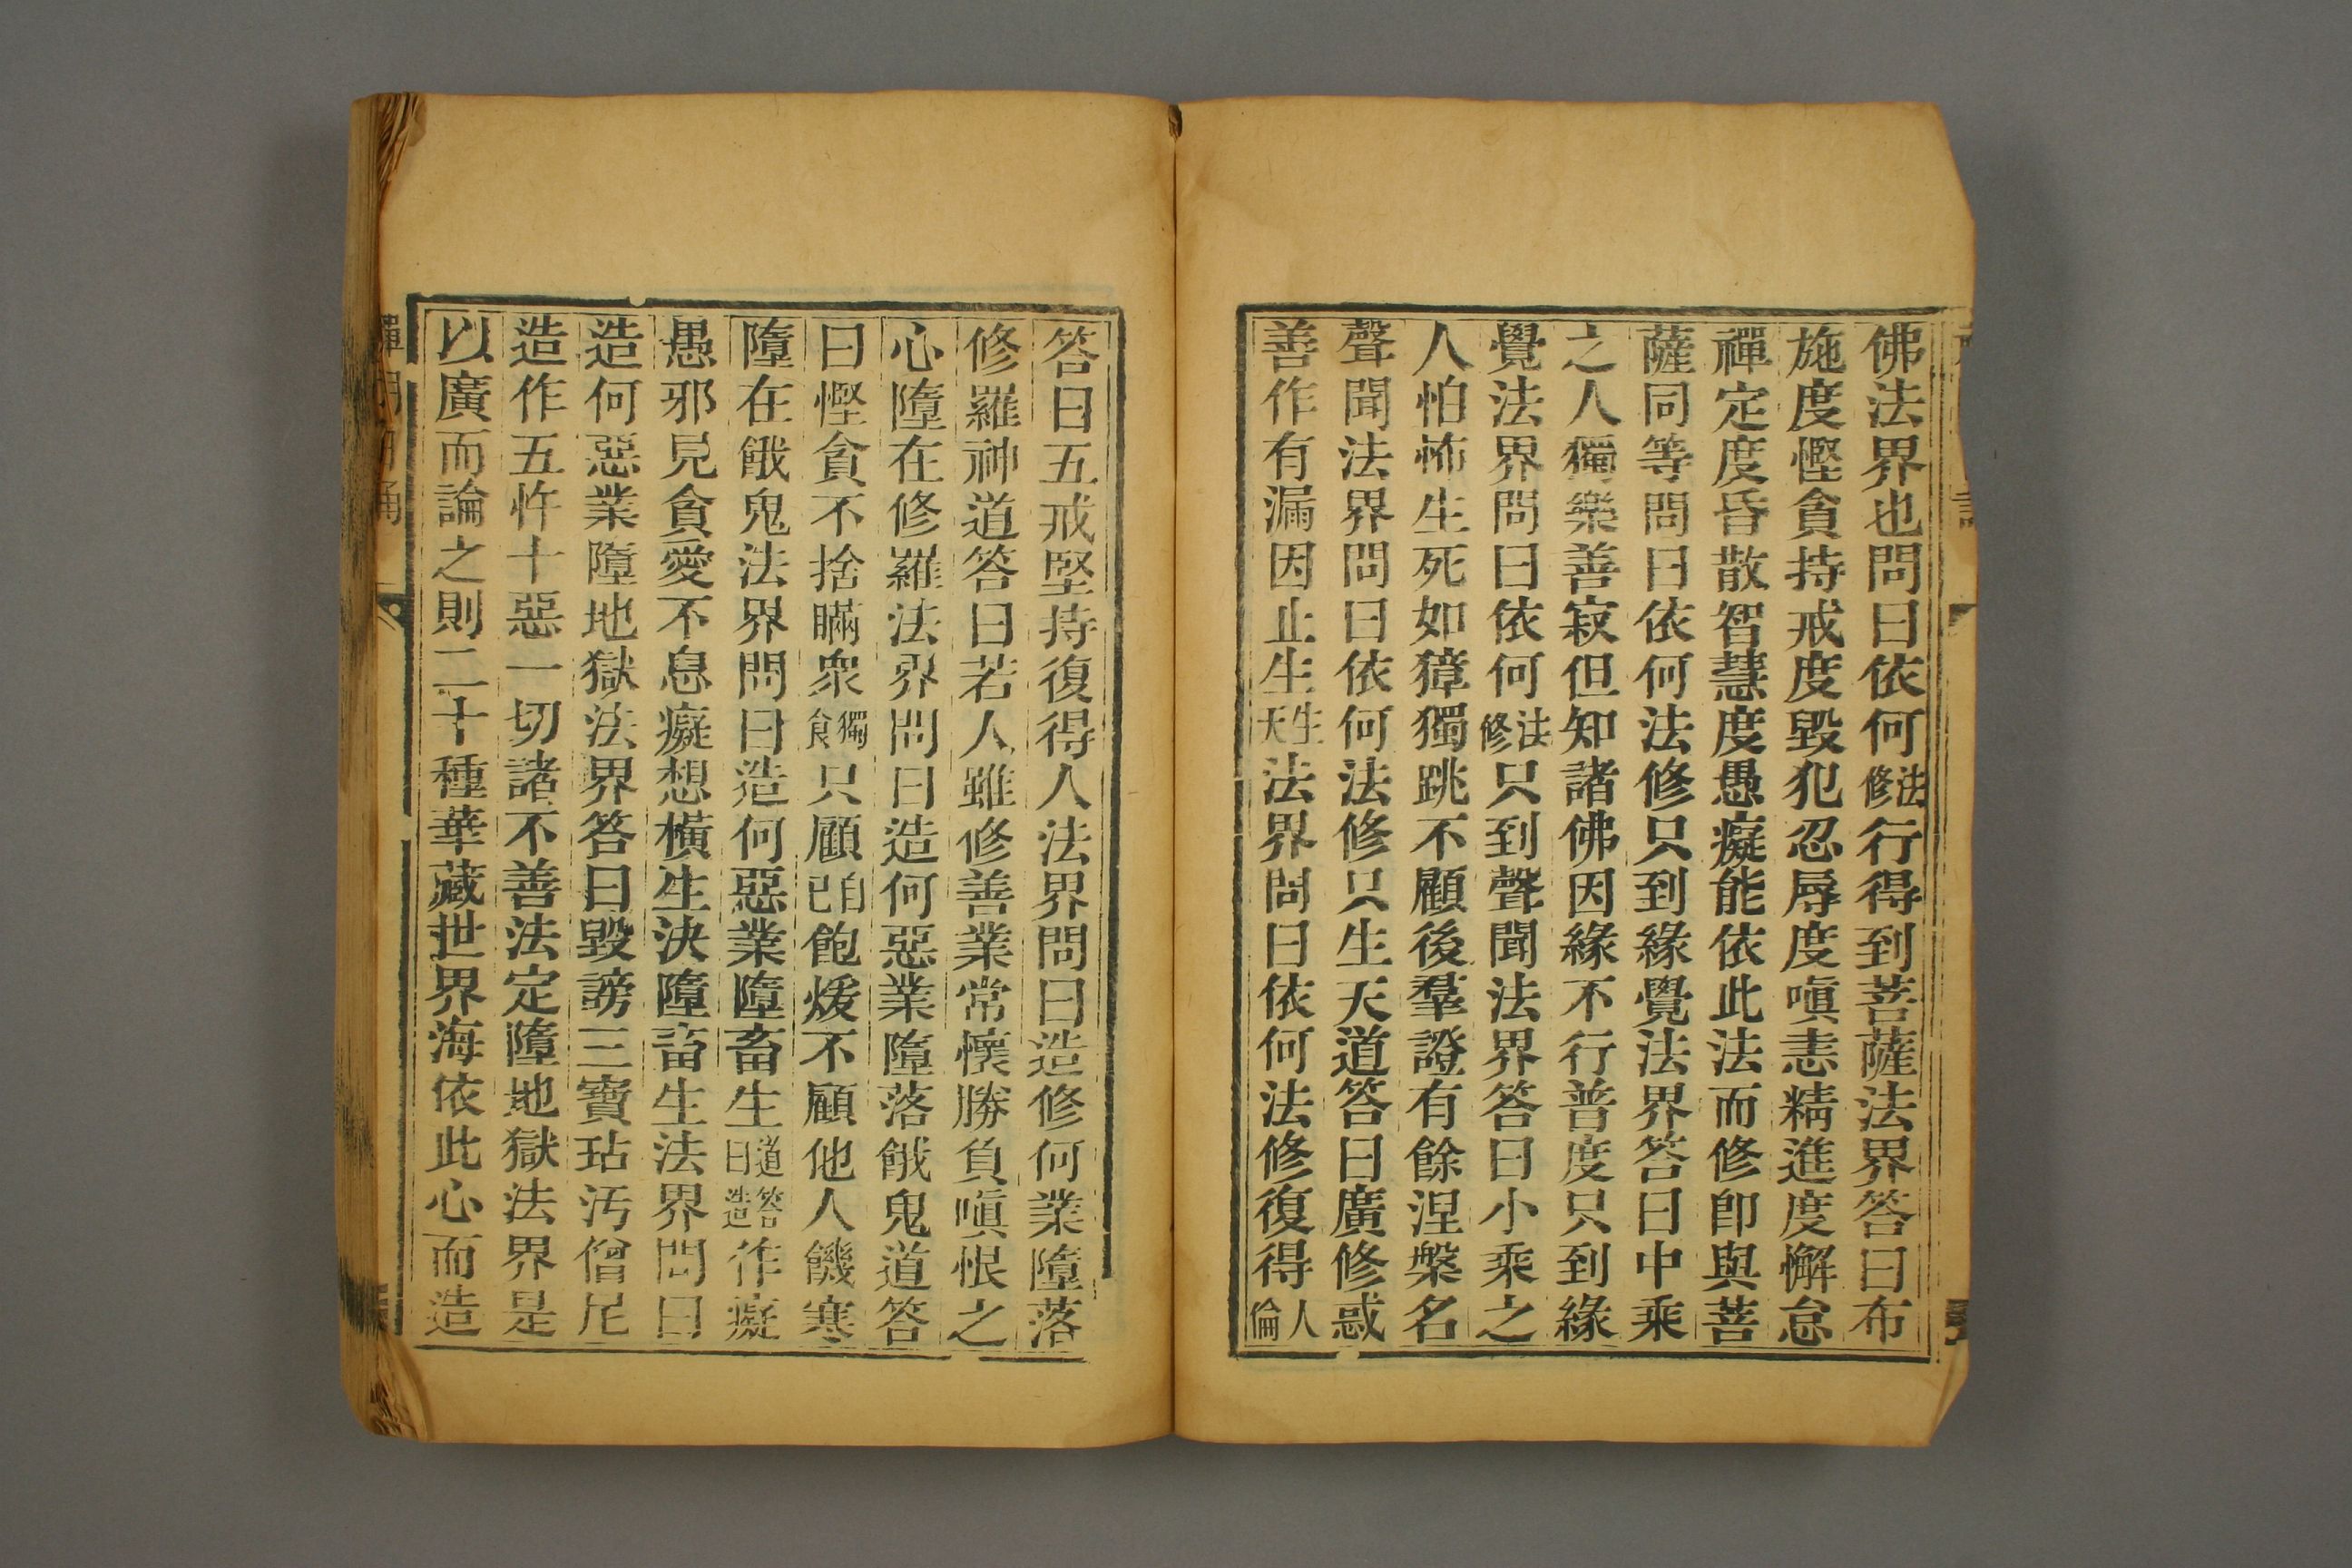 佛法界也問曰依何法修行得到菩薩法界答曰布
施度慳貪持戒度毀犯忍辱度嗔恚精進度懈怠
禪定度昏散智慧度愚癡能依此法而修卽與菩
薩同等問曰依何法修只到緣覺法界答曰中乘
之人獨樂善寂但知諸佛因緣不行普度只到緣
覺法界問曰依何法修只到聲聞法界答曰小乘之
人怕怖生死如獐獨跳不顧後羣證有餘涅槃名
聲聞法界問曰依何法修只生天道答曰廣修惑
善作有漏因止生生天法界問曰依何法修復得人倫
答曰五戒堅持復得人法界問曰造修何業墮落
修羅神道答曰若人雖修善業常懷勝負嗔恨之
心墮在修羅法界問曰造何惡業墮落餓鬼道答
曰慳貪不捨瞞衆獨食只顧自己飽煖不顧他人饑寒
墮在餓鬼法界問曰造何惡業墮畜生道答曰造作癡
愚邪見貪愛不息癡想橫生決墮畜生法界問曰
造何惡業墮地獄法界答曰毀謗三寶玷汚僧尼
造作五忤十惡一切諸不善法定墮地獄法界是
以廣而論之則二十種華藏世界海依此心而造